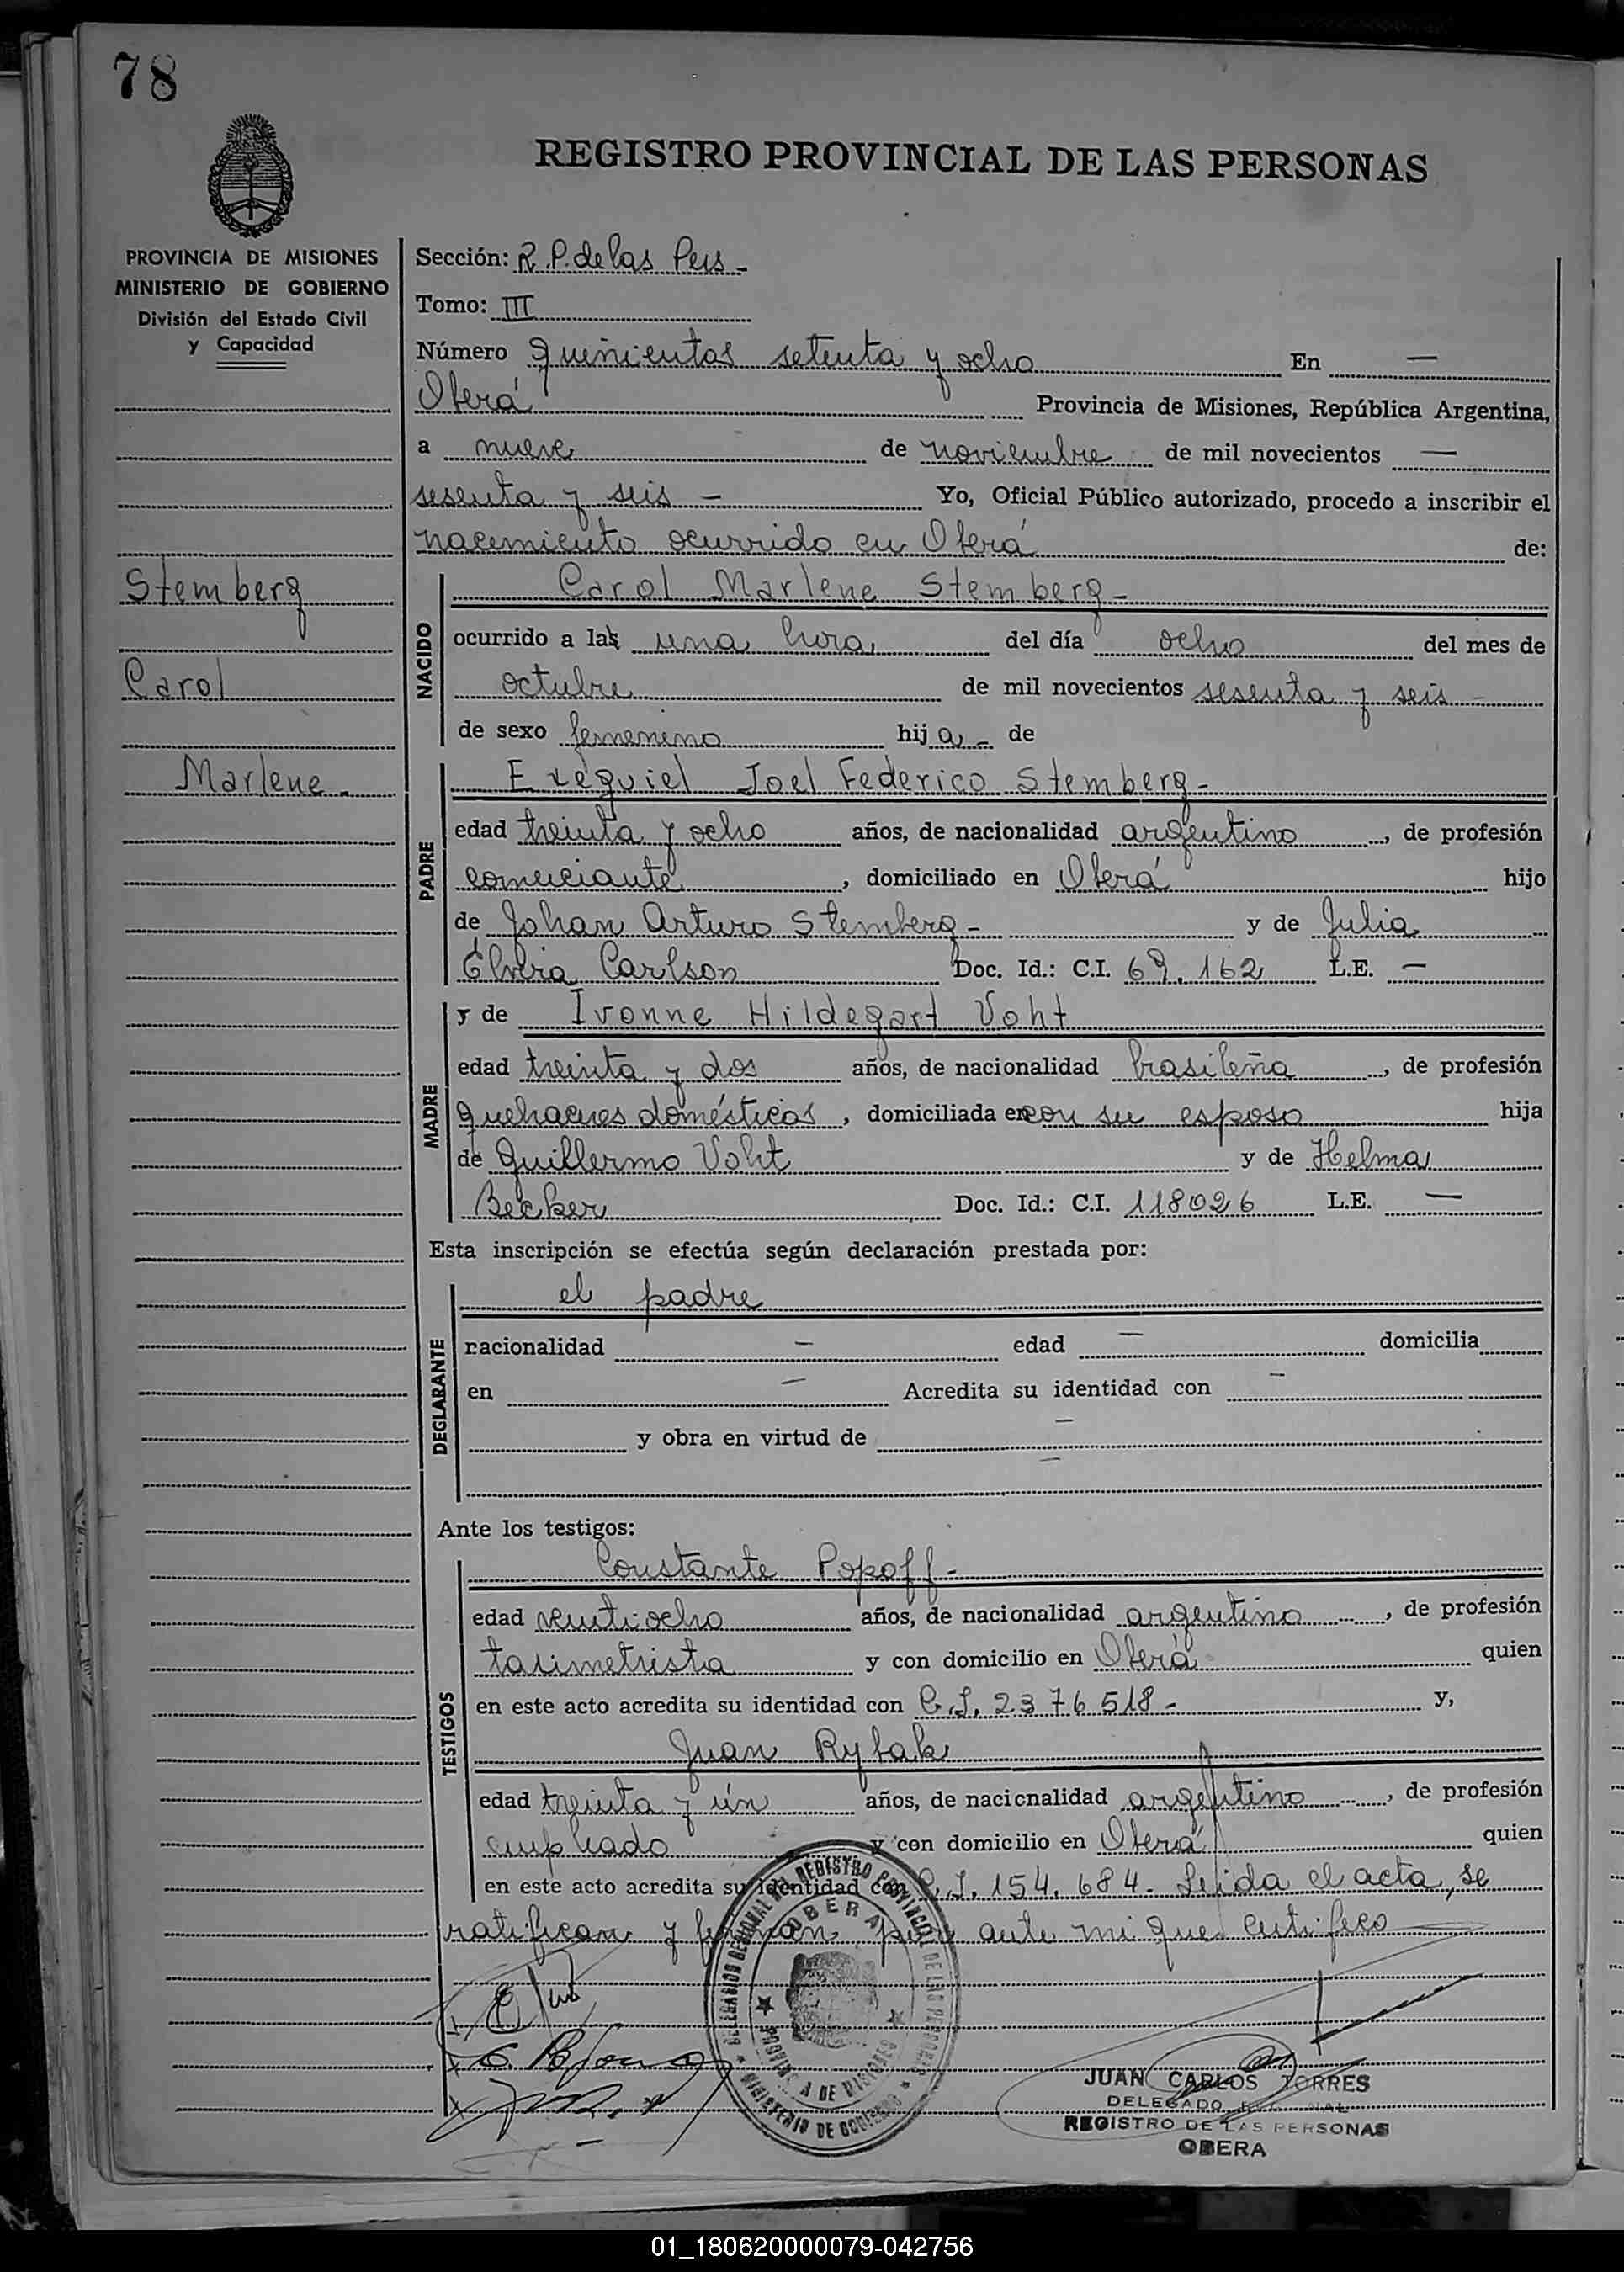 78
REGISTRO PROVINCIAL DE LAS PERSONAS
PROVINCIA DE MISIONES
MINISTERIO DE GOBIERNO
División del Estado Civil
y Capacidad
Stemberg
Carol
Marlene -
Sección: R.P. de las Pers -
Tomo: III
Número quinientos setenta y ocho En —
Oberá Provincia de Misiones, República Argentina,
a nueve de noviembre de mil novecientos —
sesenta y seis - Yo, Oficial Público autorizado, procedo a inscribir el
nacemiento ocurrido en Oberá de:
NACIDO
Carol Marlene Stemberg -
ocurrido a las una hora del día ocho del mes de
octubre de mil novecientos sesenta y seis -
de sexo femenino hija - de
PADRE
Exequiel Joel Federico Stemberg -
edad treinta y ocho años, de nacionalidad argentino, de profesión
comerciante, domiciliado en Oberá hijo
de Johan Arturo Stemberg - y de Julia
Elvira Carlson Doc. Id.: C.I. 69.162 L.E. —
MADRE
y de Ivonne Hildegart Voht
edad treinta y dos años, de nacionalidad brasileña, de profesión
quehaceres domésticos, domiciliada en con su esposo hija
de Guillermo Voht y de Helma
Becker Doc. Id.: C.I. 118026 L.E. —
Esta inscripción se efectúa según declaración prestada por:
DECLARANTE
el padre
racionalidad — edad — domicilia
en — Acredita su identidad con —
y obra en virtud de —
—
Ante los testigos:
TESTIGOS
Constante Popoff -
edad veintiocho años, de nacionalidad argentino, de profesión
taximetrista y con domicilio en Oberá quien
en este acto acredita su identidad con C.I. 2376518 - y,
Juan Rybak
edad treinta y ún años, de nacionalidad argentino, de profesión
empleado y con domicilio en Oberá quien
en este acto acredita su identidad con C.I. 154.684. Leida el acta, se
ratifican y firman por ante mi que certifico
DELEGACION REGIONAL DEL REGISTRO PROVINCIAL DE LAS PERSONAS
OBERA
PROVINCIA DE MISIONES
MINISTERIO DE GOBIERNO
JUAN CARLOS TORRES
DELEGADO
REGISTRO DE LAS PERSONAS
OBERA
01_180620000079-042756